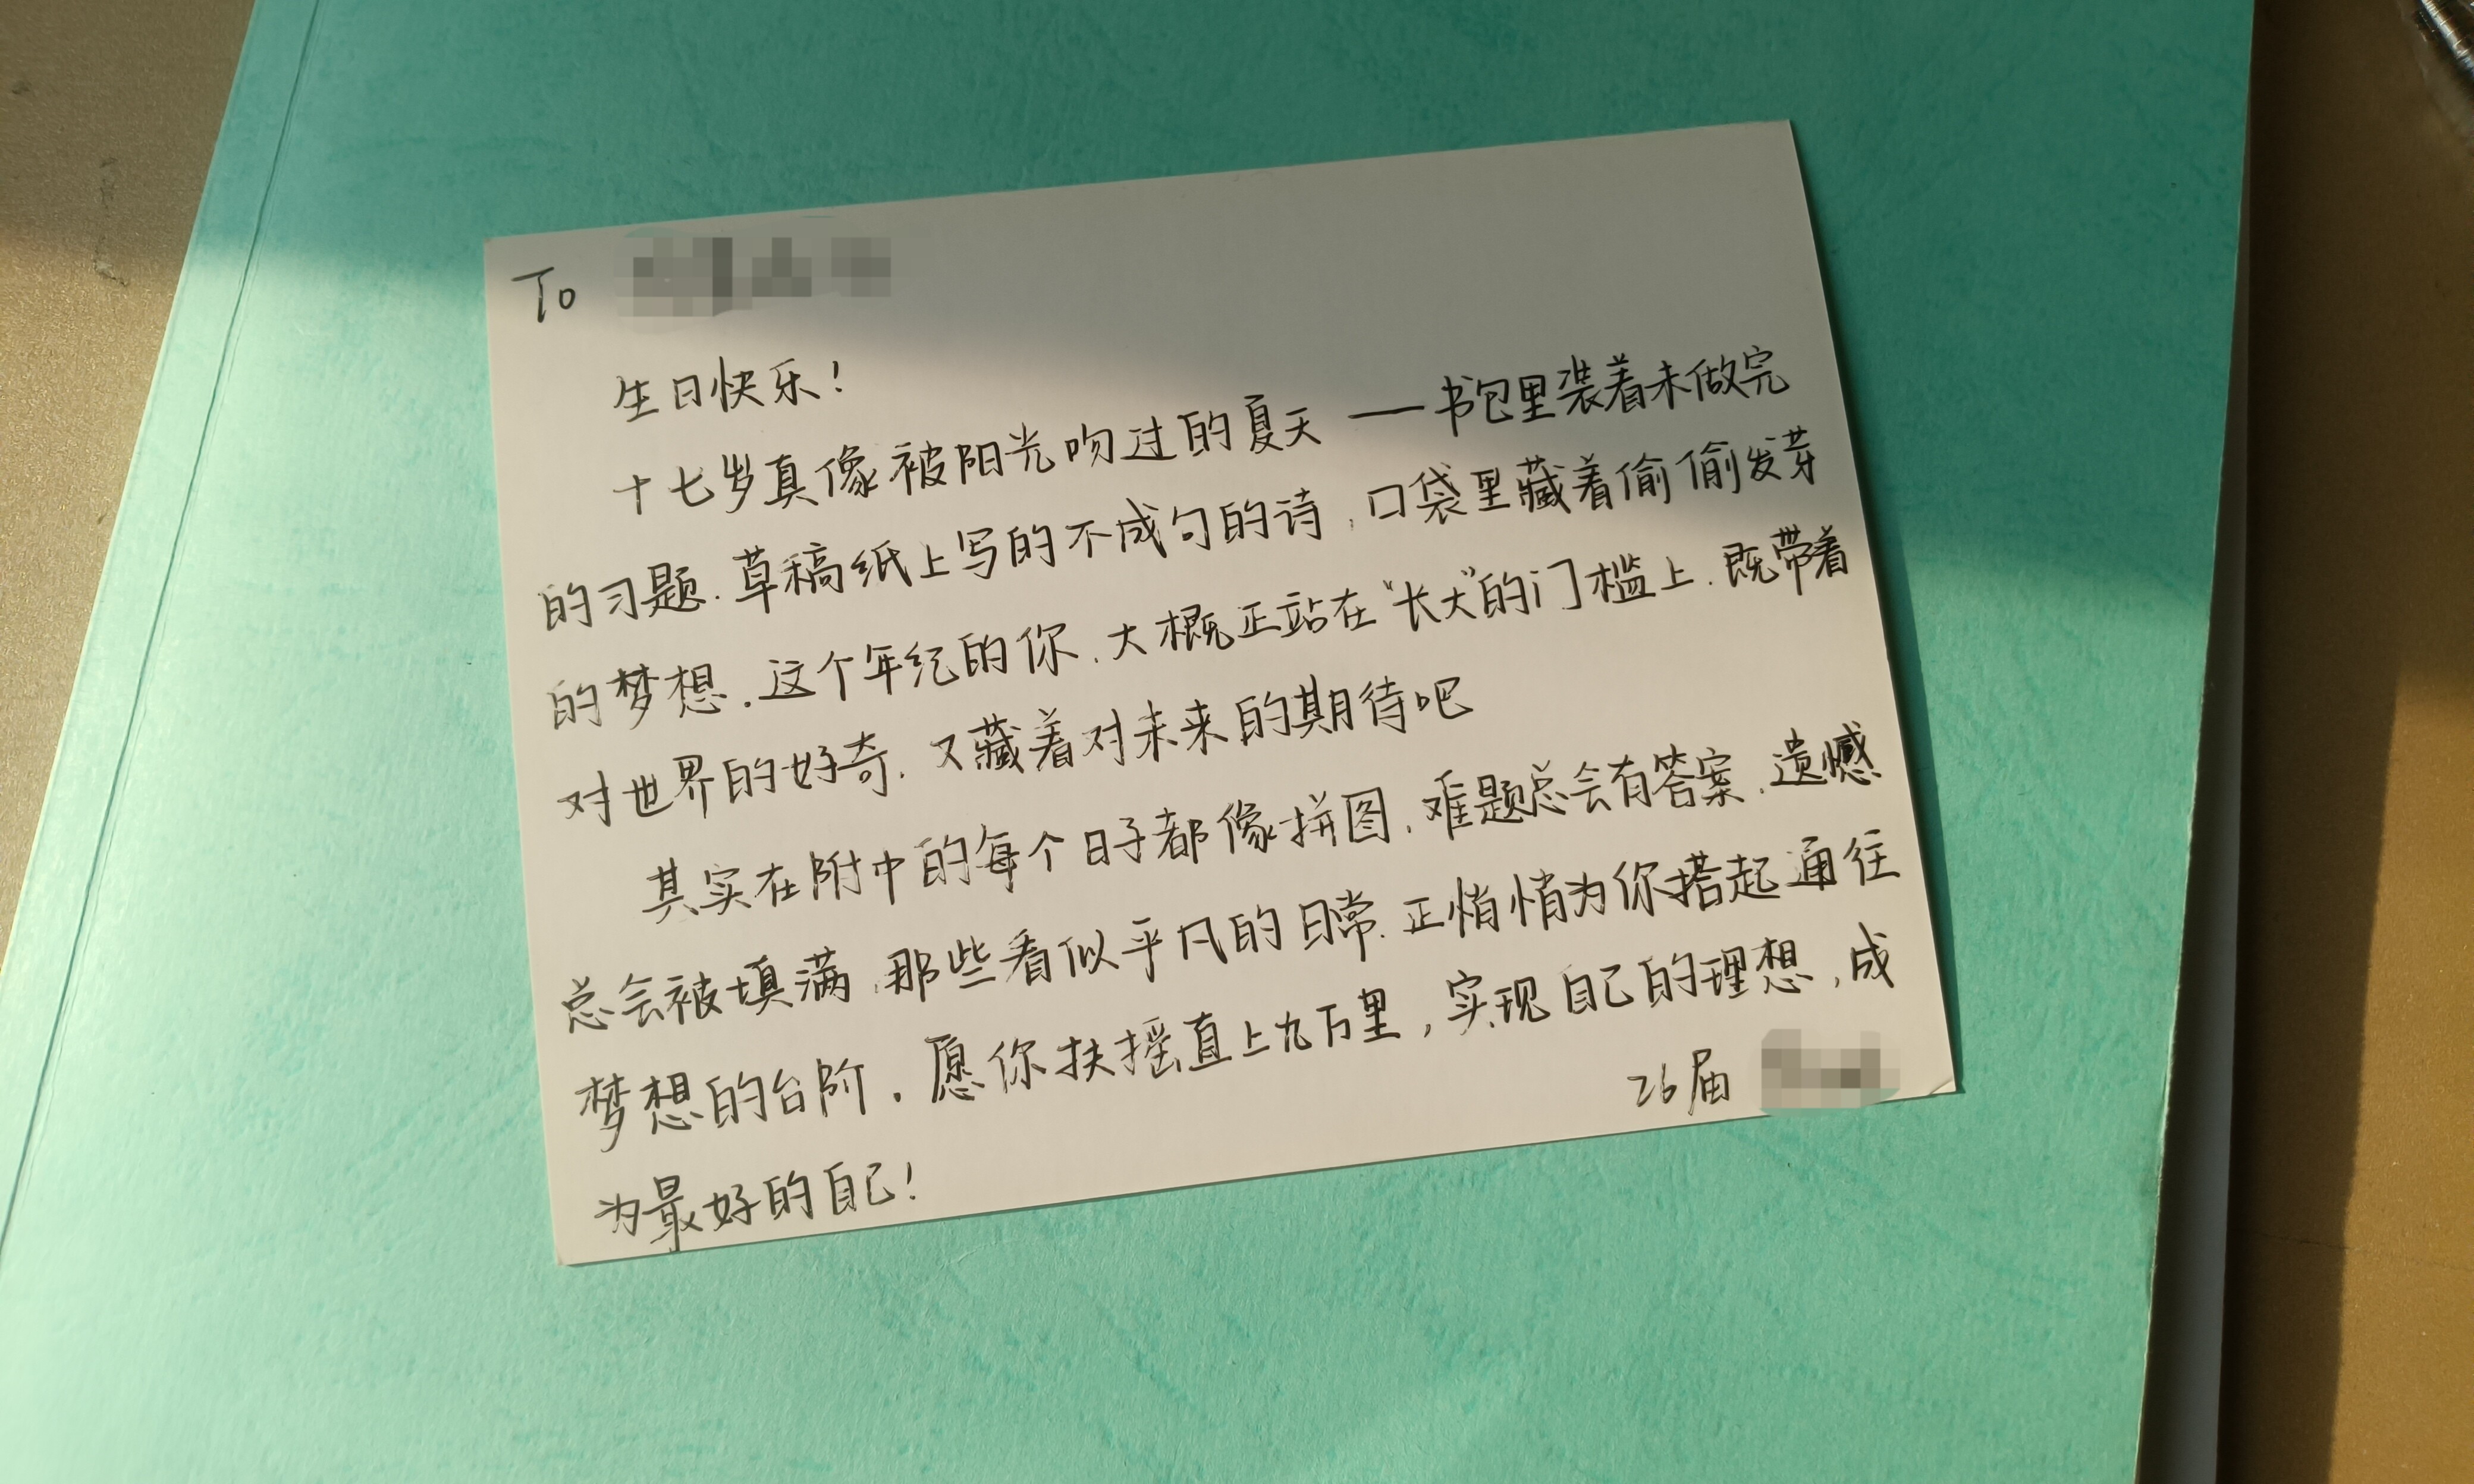 To
生日快乐！
十七岁真像被阳光吻过的夏天——书包里装着未做完
的习题，草稿纸上写的不成句的诗，口袋里藏着偷偷发芽
的梦想．这个年纪的你，大概正站在“长大”的门槛上，既带着
对世界的好奇，又藏着对未来的期待吧
其实在附中的每个日子都像拼图，难题总会有答案，遗憾
总会被填满，那些看似平凡的日常，正悄悄为你搭起通往
梦想的台阶．愿你扶摇直上九万里，实现自己的理想，成
为最好的自己！
26届